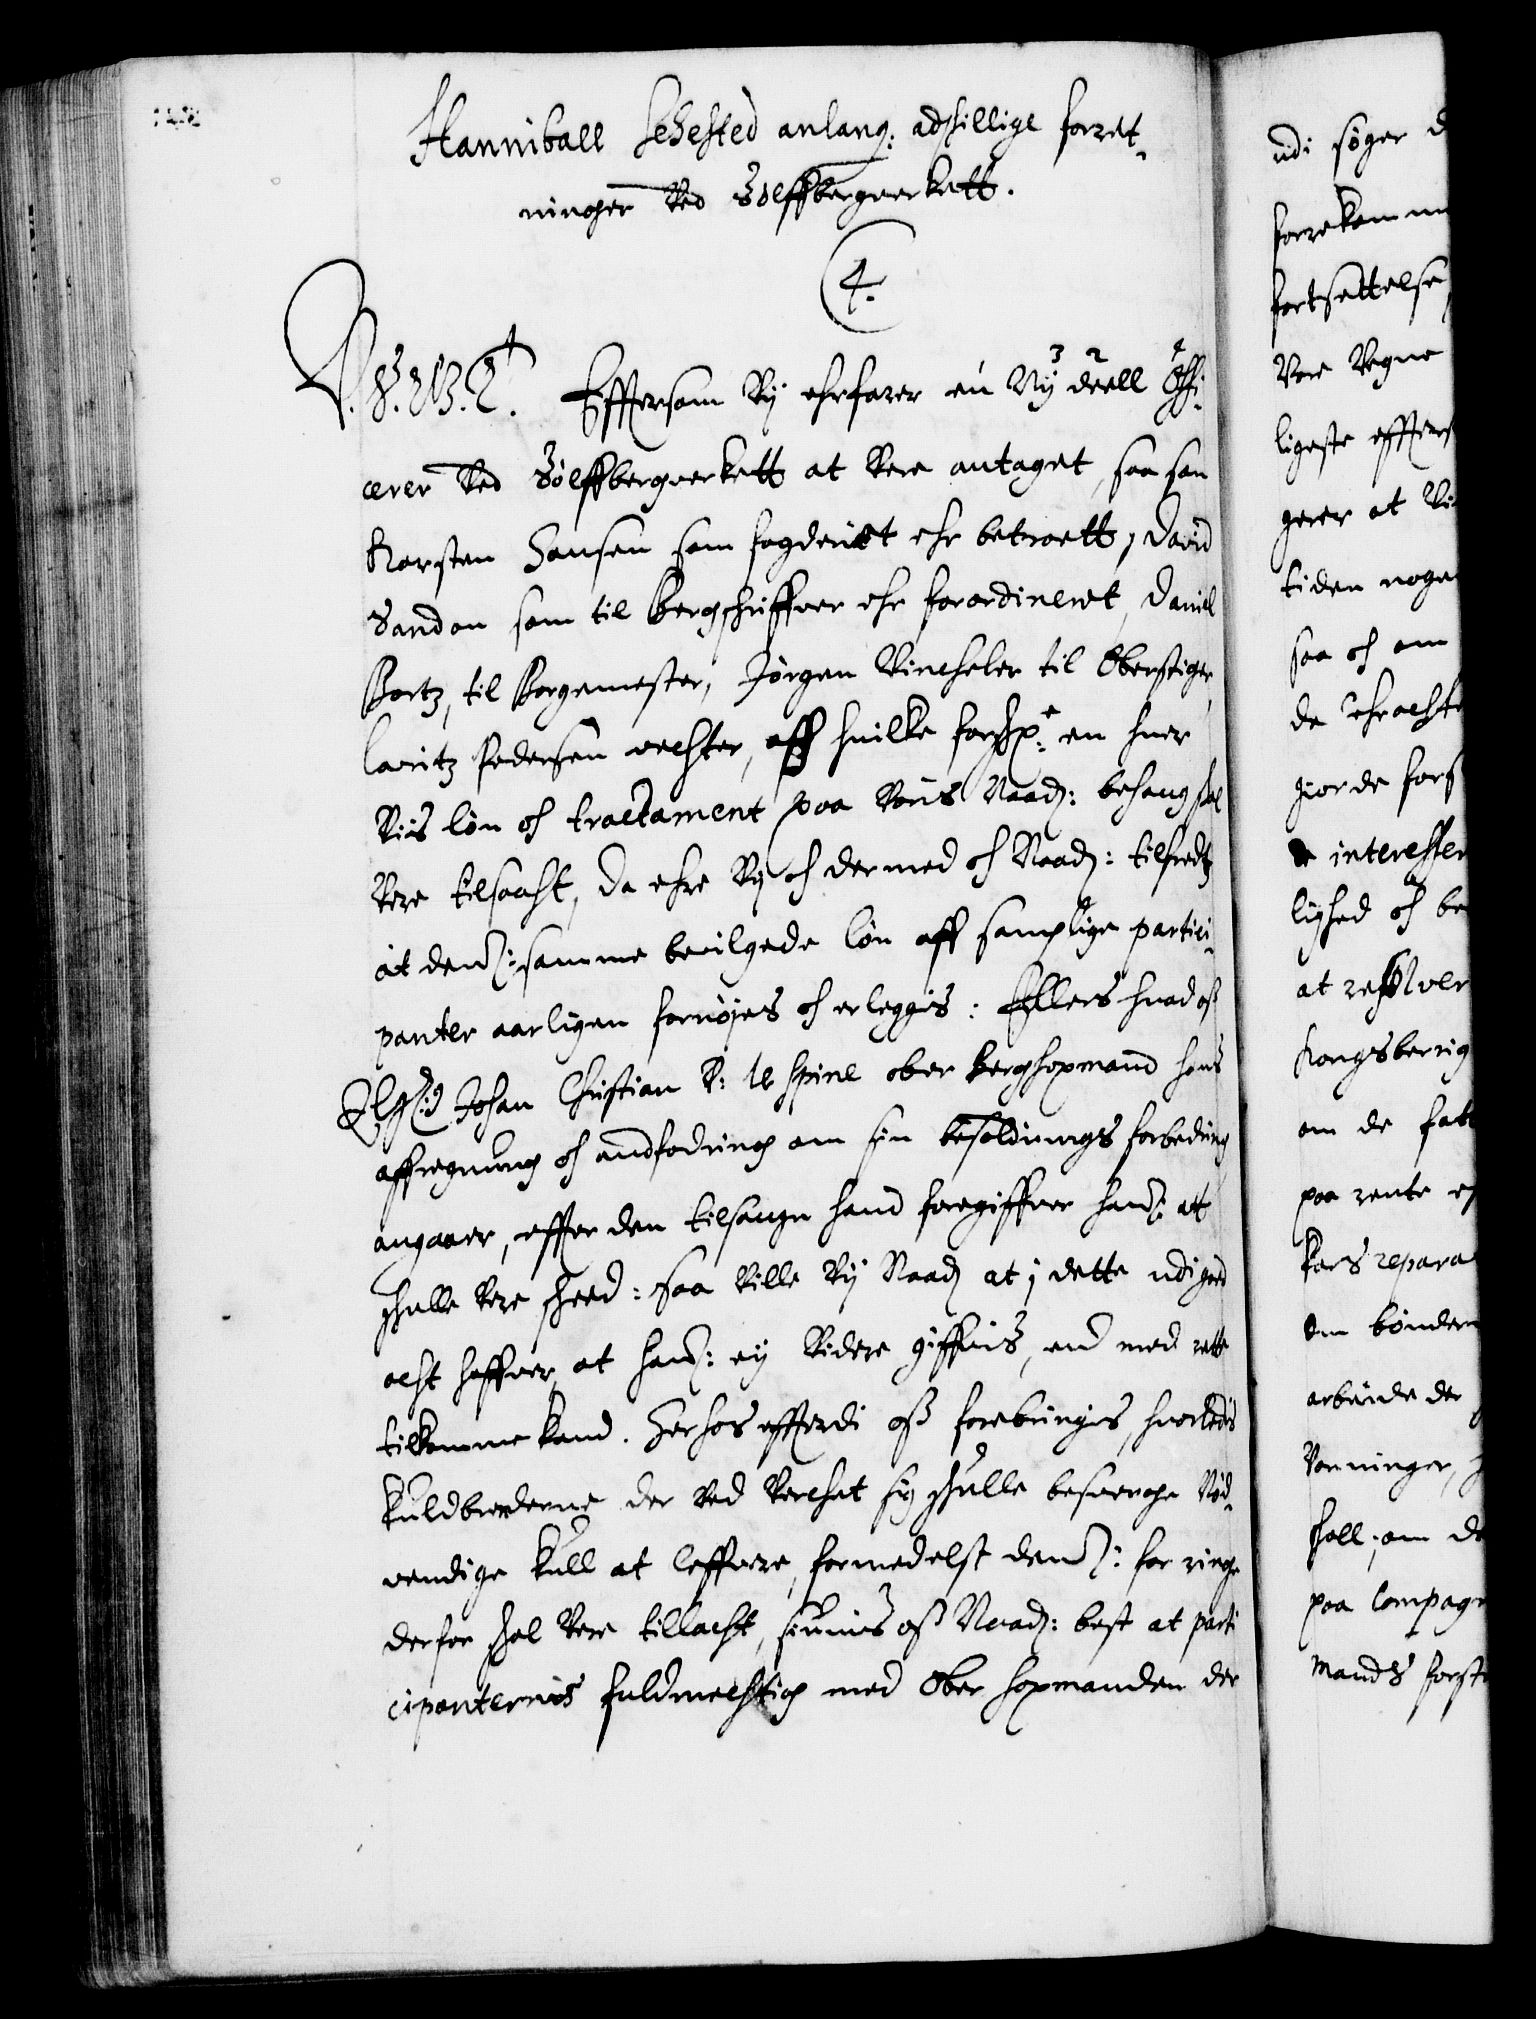 Hanniball Sehested anlang: adskillige forret¬
ninger Ved Sølffbergverkett.
4.
C. 4. G. V. T. Efftersom Vy erfarer en Ny deell Offi¬
cerer Ved Sølffbergverkett at Vere antaget, saa som
Karsten Hansen som fogderiet ehr betroett, David
Sandan som til Bergschriffver ehr forordineret, Daniel
Bartz, til Borgemester, Jørgen Vincheler til Oberstiger,
Lauritz Pedersen vechter, aff huilke forschr: en huer
Vis løn och tractament paa Voris Naadt: behaug skal
Vere tilsagt, da ehre Vy och dermed och Naadt: tilfredtz
at dennem samme bevilgede løn aff samptlige partici¬
panter aarligen fornøyes och erleggis: Ellers huad oss
Elsk: Johan Christian V: te Spine ober berghopmand hans
affregning och andfodring om sin besoldnings forbedring
angaaer, effter den tilsaugn hand foregiffver hannem at
schulle Vere scheed: saa Ville Vy Naadt at i dette udi good
acht haffver, at hannem ey Videre giffvis, end med rette
tilkomme kand. Herhos effterdi oss forebringis, huorledis
Kuldbrenderne der Ved Verchet sig schulle besverge Nød¬
vendige Kull at leffvere, formedelst dennem for ringe
derfor schal Vere tillacht, siunis oss Naadt: best at parti
cipanternis fuldmechtig med Ober hopmanden der
udi søger
forrekomm
fortsettelse
Vore Vegne
ligeste effters
gerer at
tiden noge
saa och om
de
giorde fors
de interessen
lighed och be
at resolver
Kongsberrig
om de
paa rente
kars repara
om bønder
arbeide der
Vonninger,
schall, om de
paa Compag
Mands forst